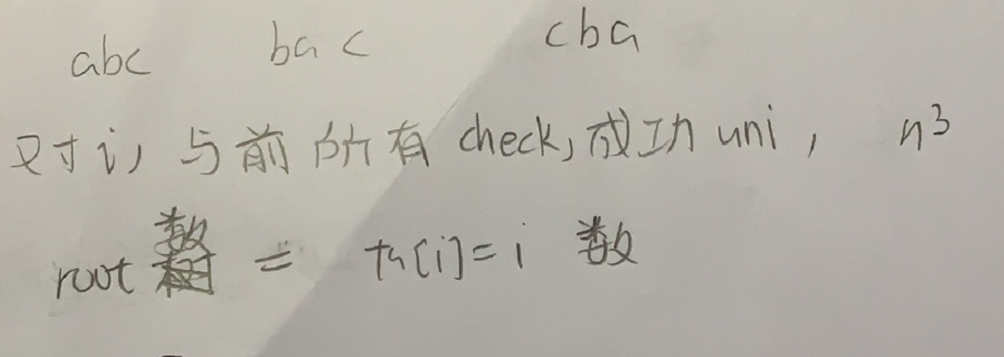 abc bac cba
对i,与前所有check,成功uni, n³
root数 = fa[i]=i 数